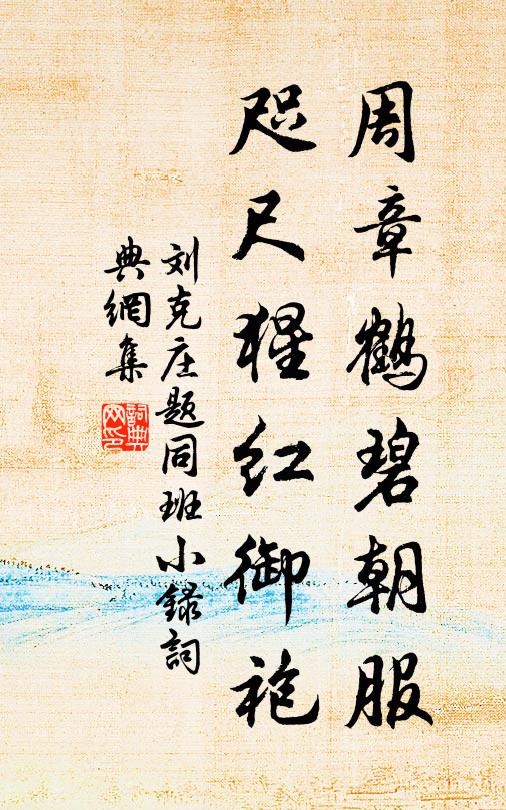 周章鹤碧朝服
咫尺猩红御袍
刘克庄题同班小録詞
典網集
詞典网印